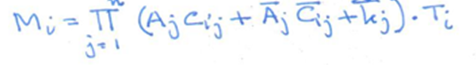 Mi = n∏j=1 (Aj Cij + A̅j C̅i̅j̅ + k̅j) · Ti